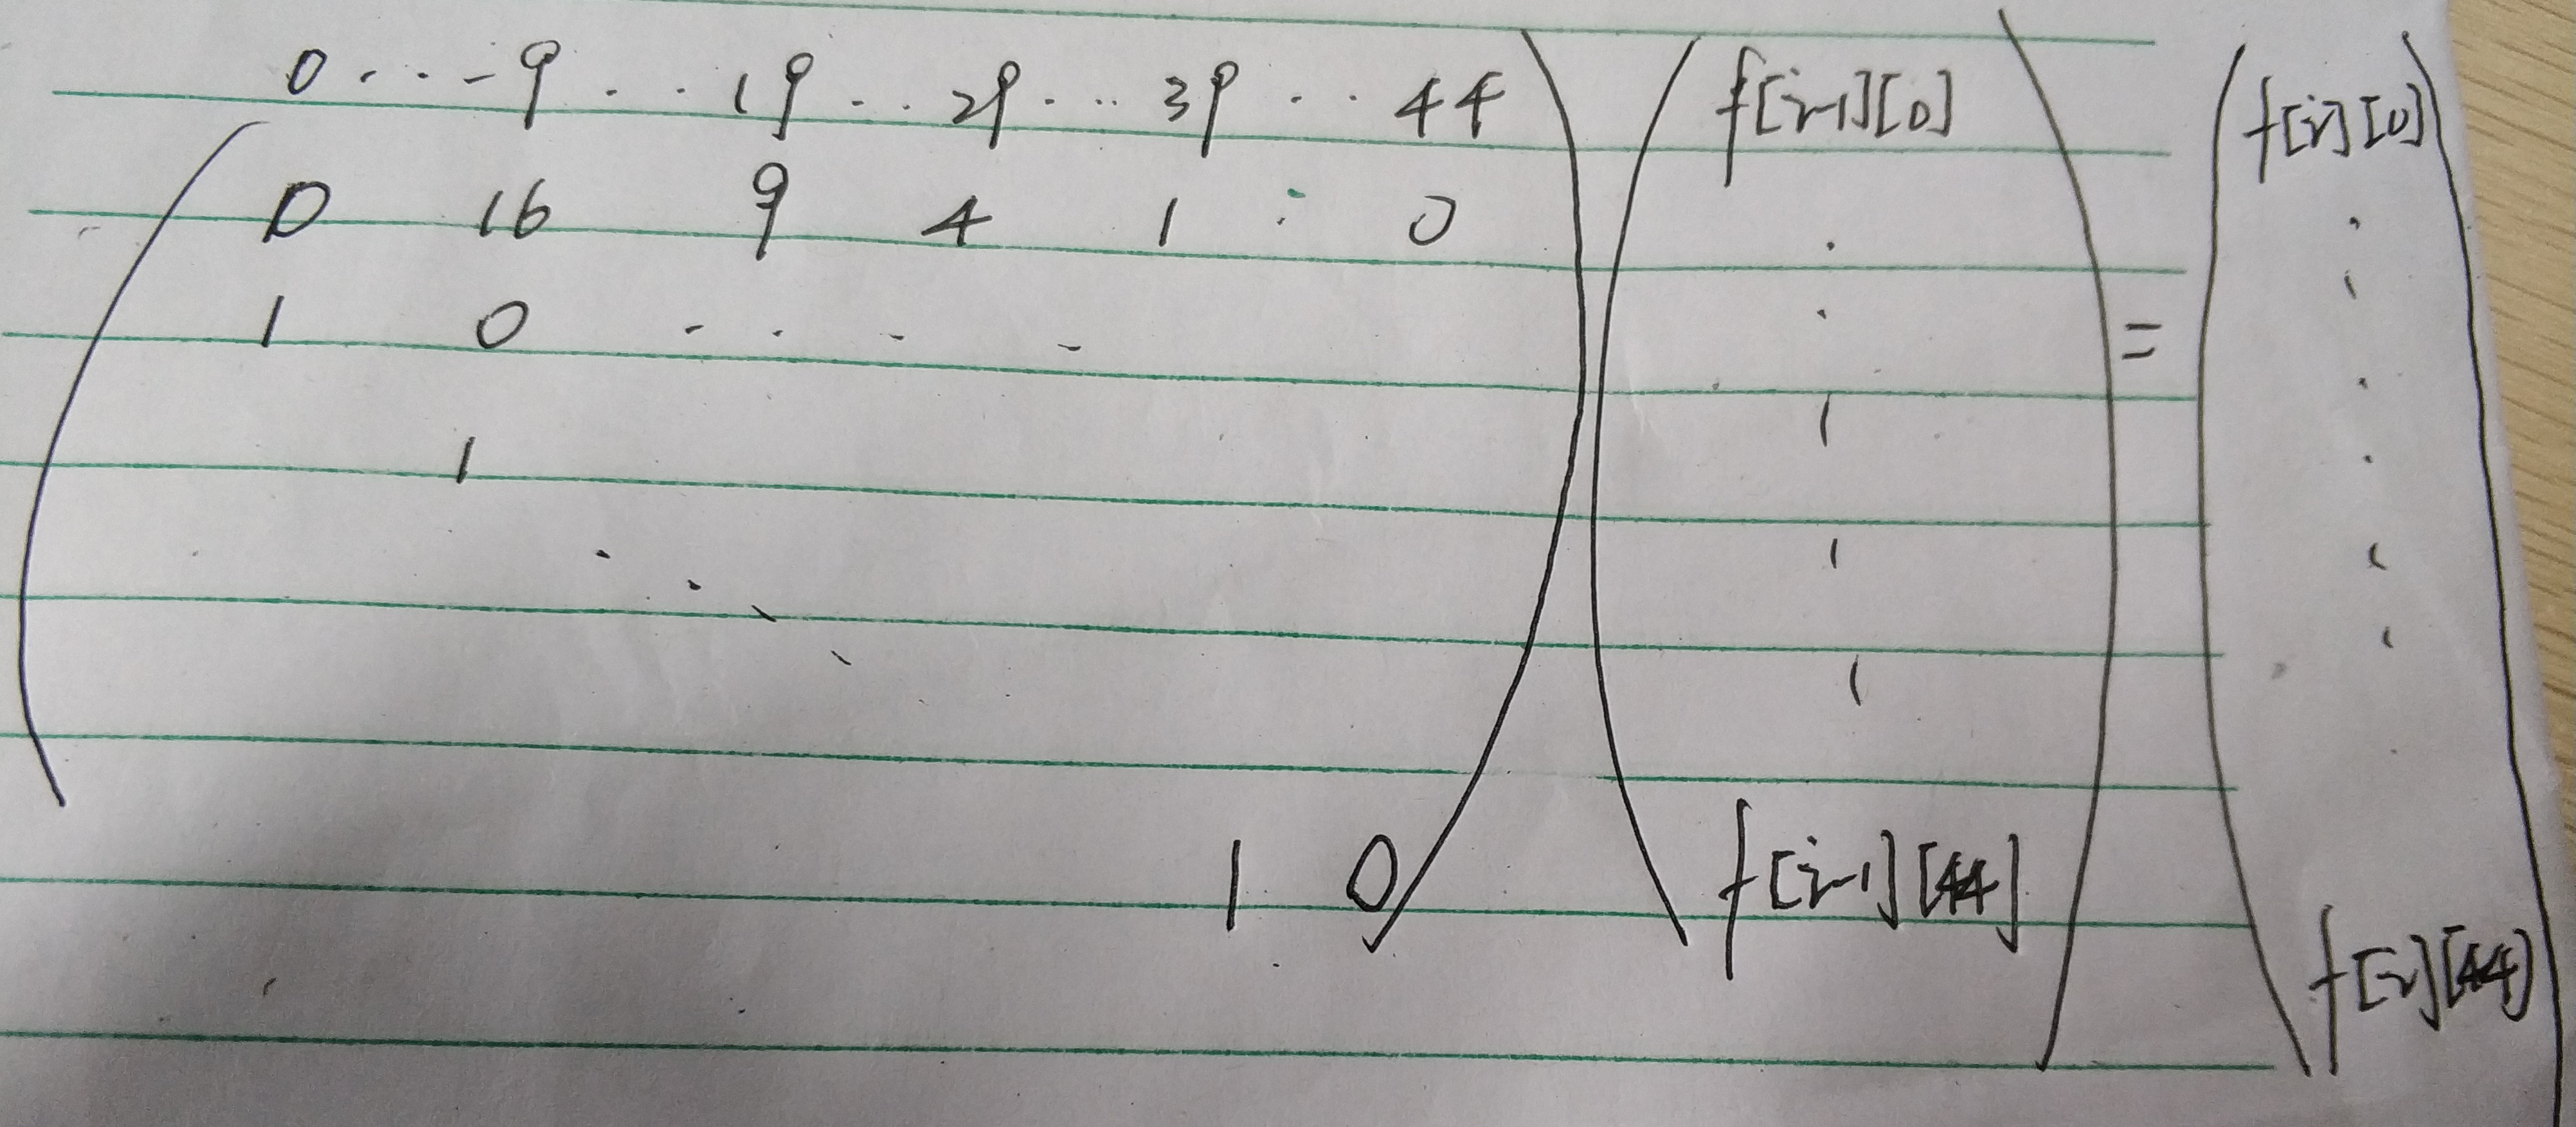 0 . . . 9 . . 19 . . 29 . . . 39 . . 44 f[i-1][0] f[i][0]
0 16 9 4 1 : 0
1 0 . . . . =
1
1 0 f[i-1][44]
f[i][44]